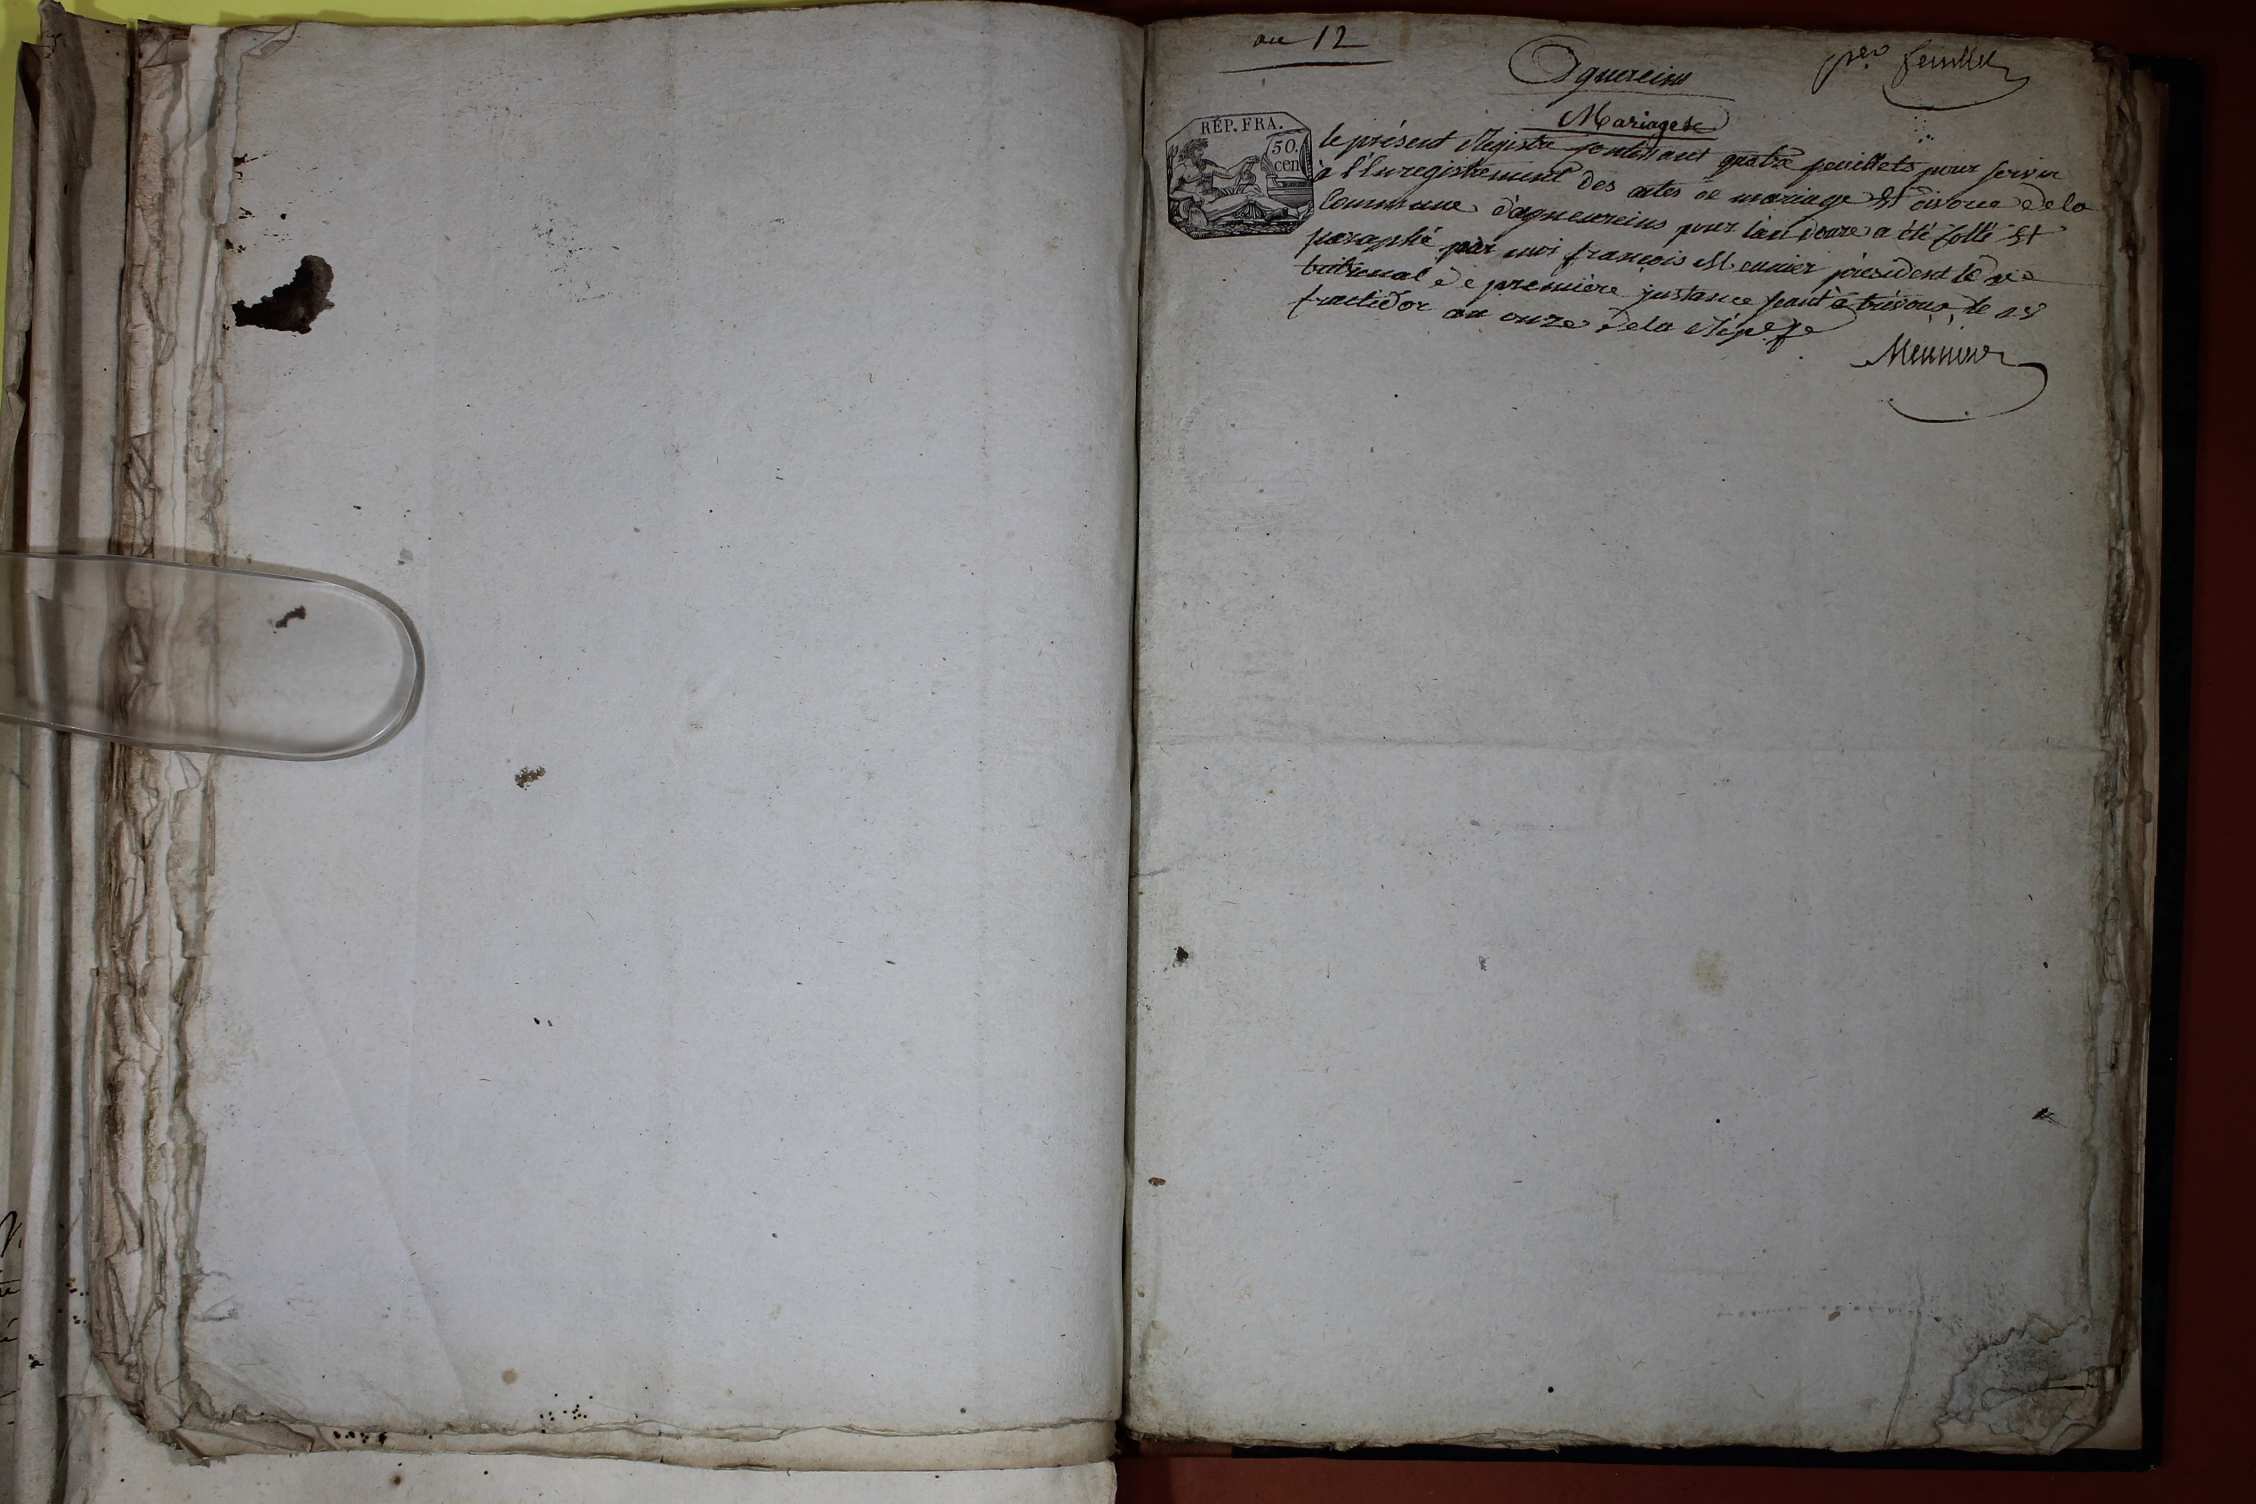 an 12
agnereins
per feuillet
Mariages
RÉP. FRA.
50.
cen
le présent Registre contenant quatre feuillets pour servir
à l'Enregistrement des actes de mariage Et divorce de la
Commune d'agneureins pour l'an douze a été Cotté Et
paraphé par moi françois Meunier président le
tribunal de première instance séant à trévoux, le
fructidor an onze de la Rép. fse
Meunier